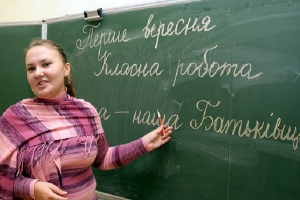 Перше вересня
Класна робота
а – наша Батьківщ